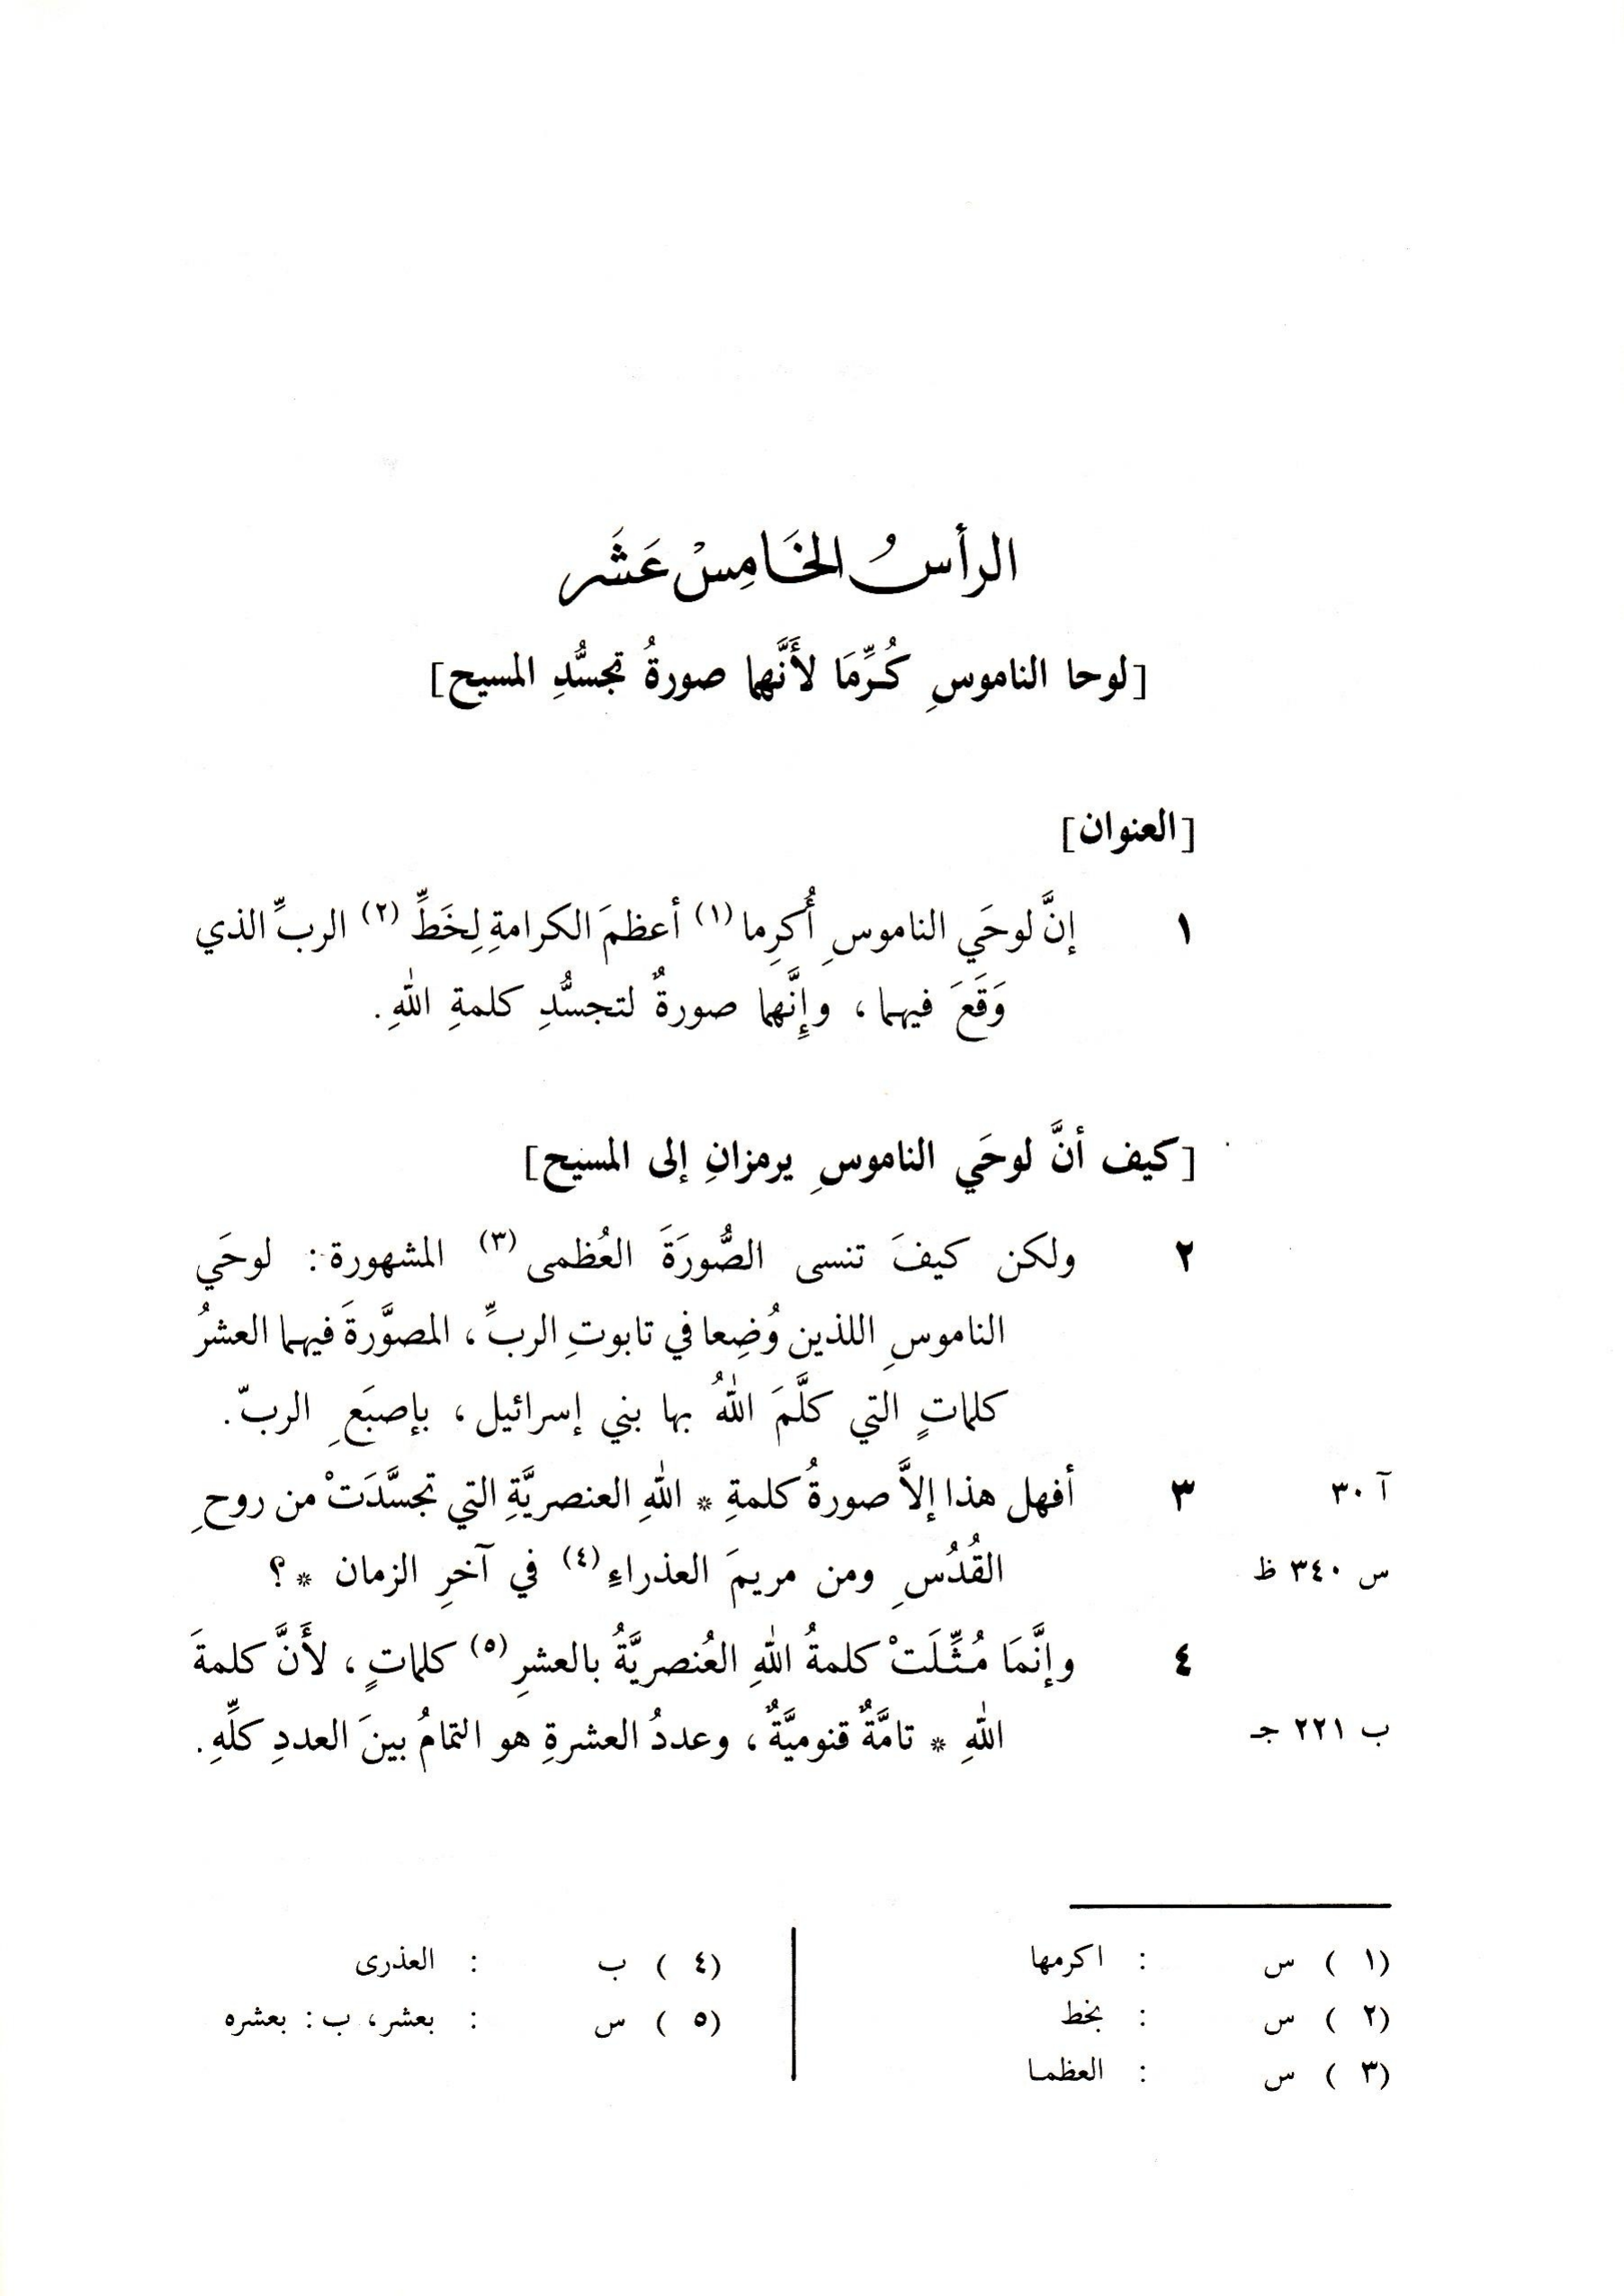 الرأسُ الخَامِسْ عَشَر
[لوحا الناموسِ كُرِّمَا لأَنَّهما صورةُ تجسُّدِ المسيح]
[العنوان]
١ إنَّ لوحَي الناموسِ أُكرِما (١) أعظمَ الكرامةِ لِخَطِّ (٢) الربِّ الذي
وَقَعَ فيهما، وإِنَّهما صورةٌ لتجسُّدِ كلمةِ اللهِ.
[كيف أنَّ لوحَي الناموسِ يرمزانِ إلى المسيح]
٢ ولكن كيفَ تنسى الصُّورَةَ العُظمى (٣) المشهورة: لوحَي
الناموسِ اللذين وُضِعا في تابوتِ الربِّ، المصوَّرةَ فيهما العشرُ
كلماتٍ التي كلَّمَ اللهُ بها بني إسرائيل، بإصبَعِ الربّ.
آ ٣٠ ٣ أفهل هذا إلاَّ صورةُ كلمةِ * اللهِ العنصريَّةِ التي تجسَّدَتْ من روحِ
س ٣٤٠ ظ القُدُسِ ومن مريمَ العذراءِ (٤) في آخرِ الزمان *؟
٤ وإنَّمَا مُثِّلَتْ كلمةُ اللهِ العُنصريَّةُ بالعشرِ (٥) كلماتٍ، لأَنَّ كلمةَ
ب ٢٢١ جـ اللهِ * تامَّةٌ قنوميَّةٌ، وعددُ العشرةِ هو التمامُ بينَ العددِ كلِّهِ.
(١) س : اكرمها
(٢) س : بخط
(٣) س : العظمـا
(٤) ب : العذرى
(٥) س : بعشر، ب: بعشره